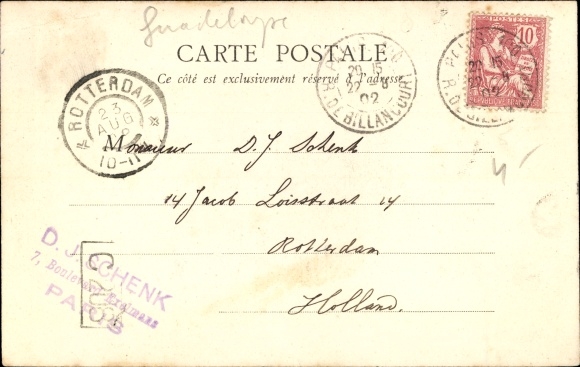 Guadeloupe
CARTE POSTALE
Ce côté est exclusivement réservé à l'adresse
POSTES
10
20 15
22 8
02
R. DE BILLANCOURT
20 15
02
R. DE BILLAN
ROTTERDAM
23
AUG
10-11
Monsieur D. J. Schenk
14 Jacob Loisstraat 14
Rotterdam
Holland.
D. J. SCHENK
7, Boulevard
PARIS